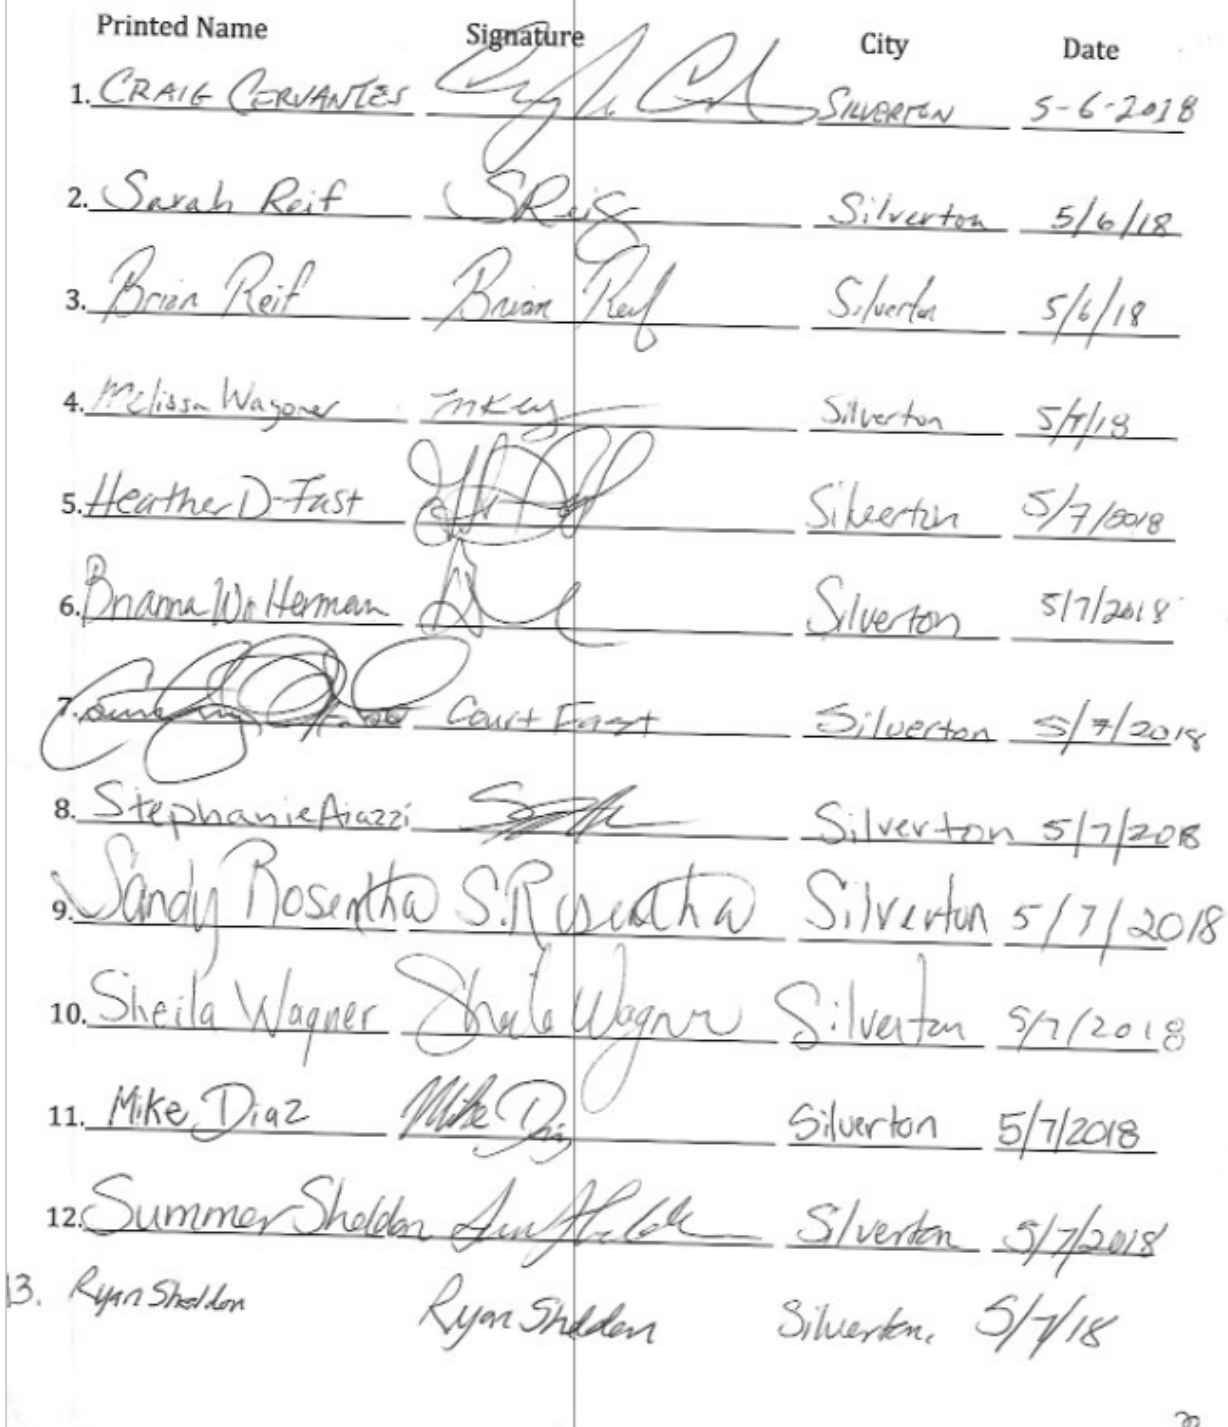 Printed Name Signature City Date
1. CRAIG CERVANTES SILVERTON 5-6-2018
2. Sarah Reif SReif Silverton 5/6/18
3. Brian Reif Brian Reif Silverton 5/6/18
4. Melissa Wagoner Silverton 5/7/18
5. Heather D-Fast Silverton 5/7/2018
6. Brianna Wolterman Silverton 5/7/2018
7. Court Silverton 5/7/2018
8. Stephanie Aiazzi Silverton 5/7/2018
9. Sandy Rosentha S. Rosentha Silverton 5/7/2018
10. Sheila Wagner Sheila Wagner Silverton 5/7/2018
11. Mike Diaz Mike Diaz Silverton 5/7/2018
12. Summer Sheldon Silverton 5/7/2018
13. Ryan Sheldon Ryan Sheldon Silverton. 5/7/18